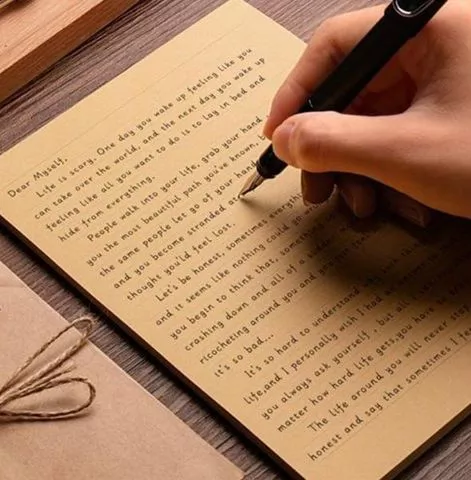 Dear Myself,
Life is scary. One day you wake up feeling like you
can take over the world, and the next day you wake up
feeling like all you want to do is to lay in bed and
hide from everything.
People walk into your life, grab your hand
you the most beautiful path you've known,
the same people let go of your han
and you become stranded
thought you'd feel lost.
Let's be honest, sometimes everyth
and it seems like nothing could go
you begin to think that, some
crashing down and all of a
ricocheting around you and
it's so bad...
It's so hard to understand
life,and I personally wish I had
you always ask yourself, but all
matter how hard life gets,you have
The life around you will never sto
honest and say that sometimes I